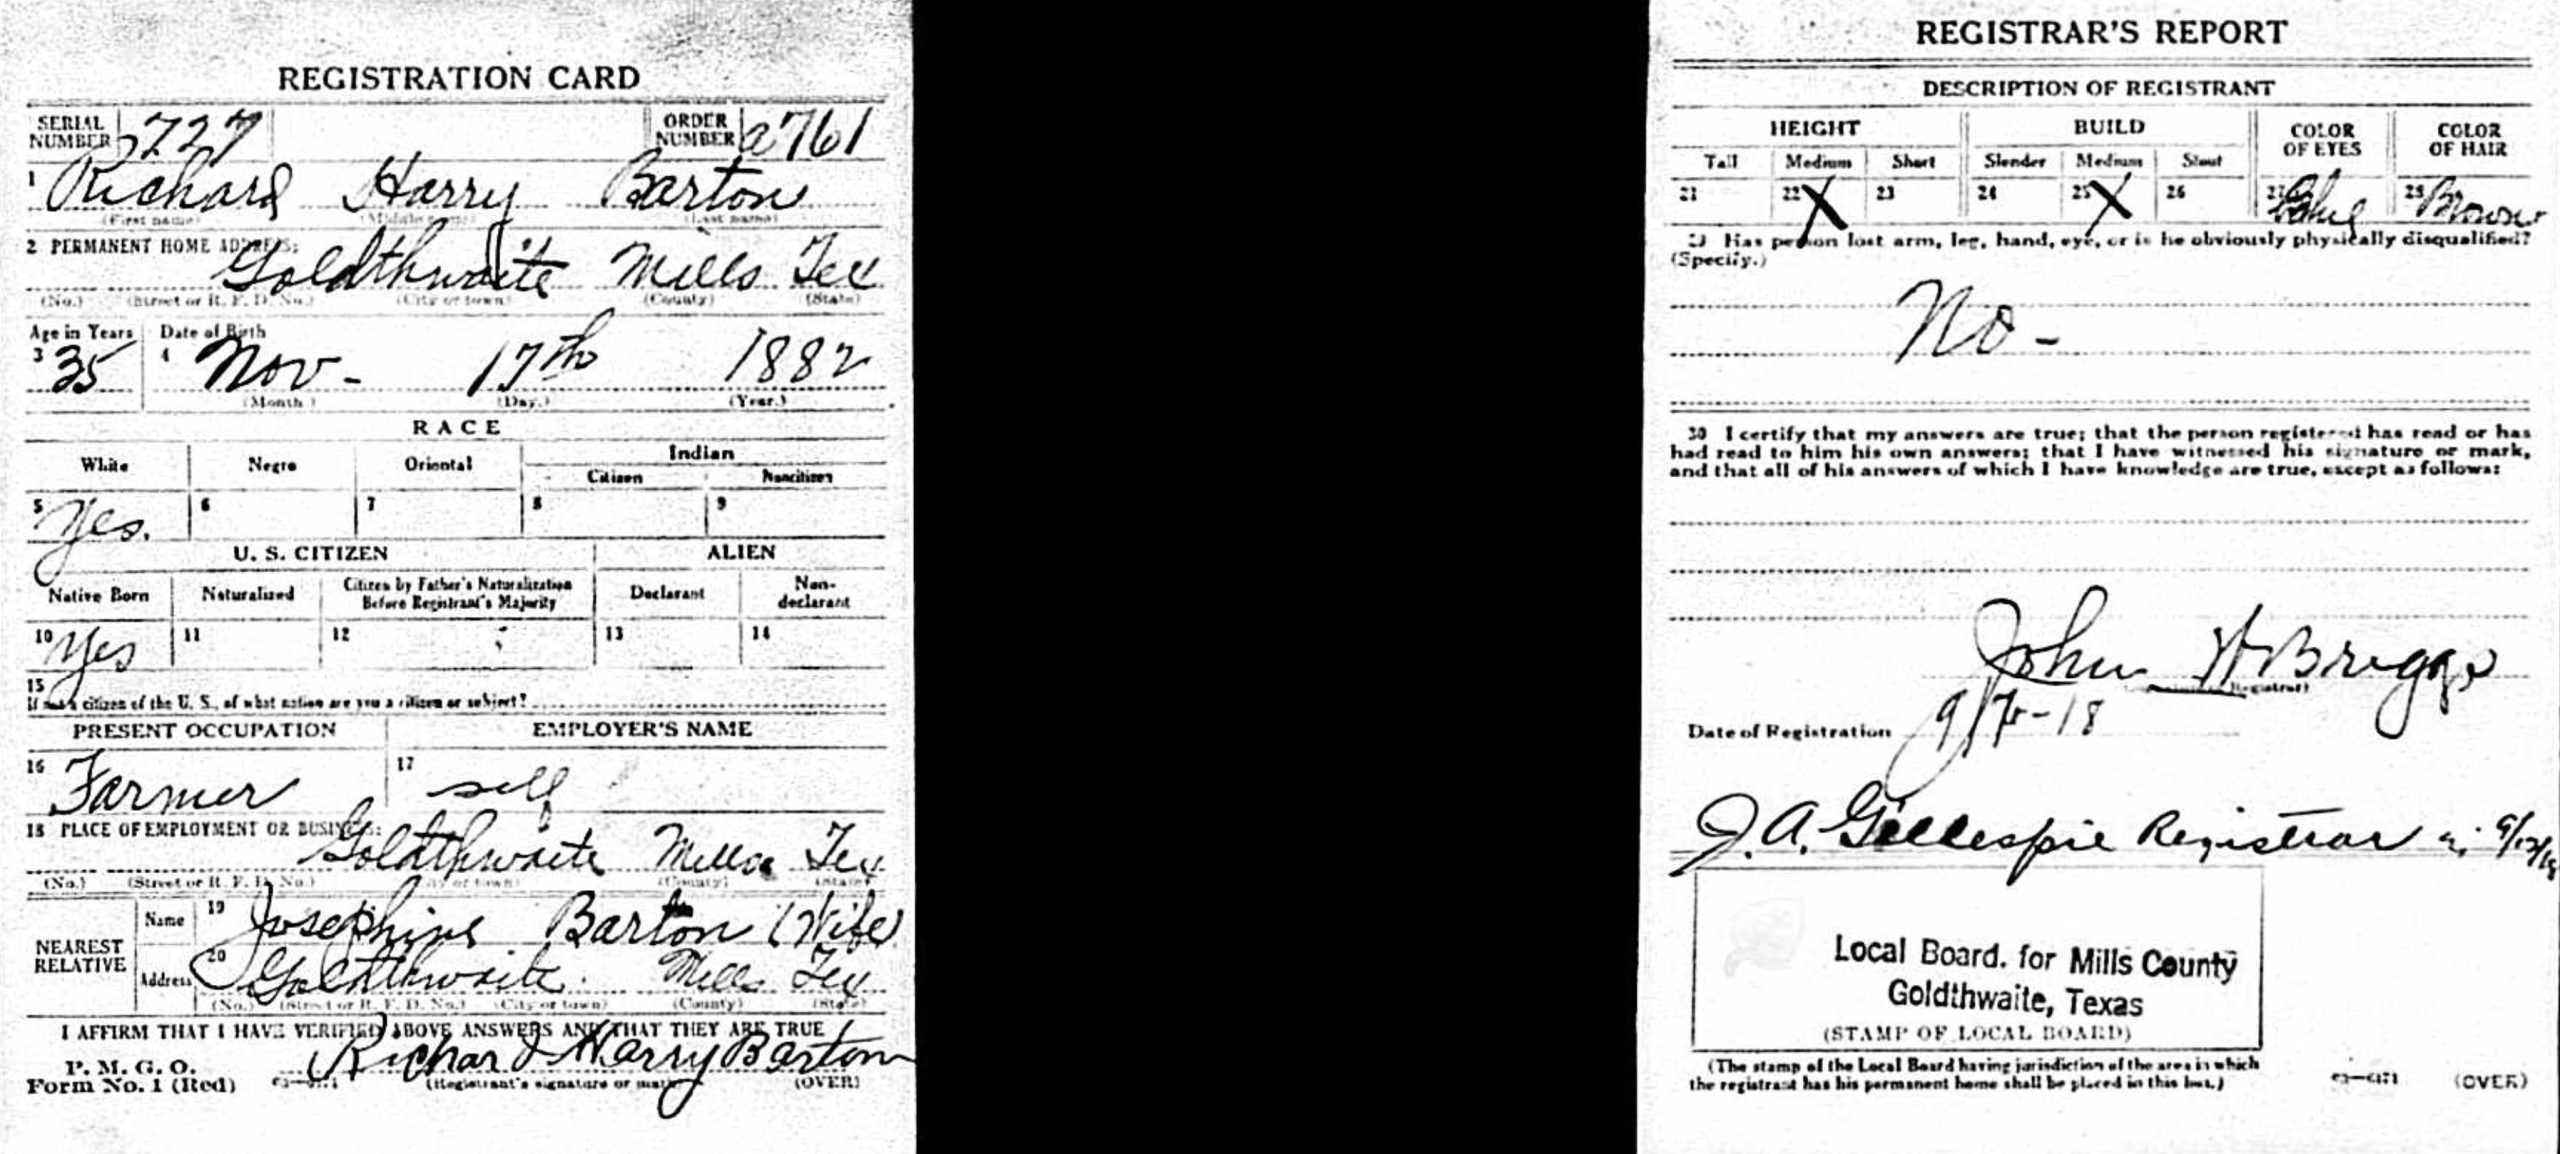 REGISTRATION CARD
SERIAL NUMBER 727 ORDER NUMBER a761
1 Richard Harry Barton
(First name) (Middle name) (Last name)
2 PERMANENT HOME ADDRESS:
Goldthwaite Mills Tex
(No.) (Street or R. F. D. No.) (City or town) (County) (State)
Age in Years Date of Birth
3 35 4 Nov - 17th 1882
(Month.) (Day.) (Year.)
RACE
White Negro Oriental Indian
Citizen Noncitizen
5 Yes. 6 7 8 9
U. S. CITIZEN ALIEN
Native Born Naturalized Citizen by Father's Naturalization Before Registrant's Majority Declarant Non-declarant
10 Yes 11 12 13 14
15
If not a citizen of the U. S., of what nation are you a citizen or subject?
PRESENT OCCUPATION EMPLOYER'S NAME
16 Farmer 17 self
18 PLACE OF EMPLOYMENT OR BUSINESS:
Goldthwaite Mills Tex
(No.) (Street or R. F. D. No.) (City or town) (County) (State)
NEAREST RELATIVE
Name 19 Josephine Barton (Wife)
Address 20 Goldthwaite Mills Tex
(No.) (Street or R. F. D. No.) (City or town) (County) (State)
I AFFIRM THAT I HAVE VERIFIED ABOVE ANSWERS AND THAT THEY ARE TRUE
P. M. G. O.
Form No. 1 (Red) Richard Harry Barton
(Registrant's signature or mark) (OVER)
REGISTRAR'S REPORT
DESCRIPTION OF REGISTRANT
HEIGHT BUILD COLOR OF EYES COLOR OF HAIR
Tall Medium Short Slender Medium Stout
21 22 X 23 24 25 X 26 27 Blue 28 Brown
29 Has person lost arm, leg, hand, eye, or is he obviously physically disqualified?
(Specify.)
No -
30 I certify that my answers are true; that the person registered has read or has
had read to him his own answers; that I have witnessed his signature or mark,
and that all of his answers of which I have knowledge are true, except as follows:
John W Briggs
(Registrar)
Date of Registration
J. A. Gillespie Registrar
Local Board. for Mills County
Goldthwaite, Texas
(STAMP OF LOCAL BOARD)
(The stamp of the Local Board having jurisdiction of the area in which
the registrant has his permanent home shall be placed in this box.)
(OVER)